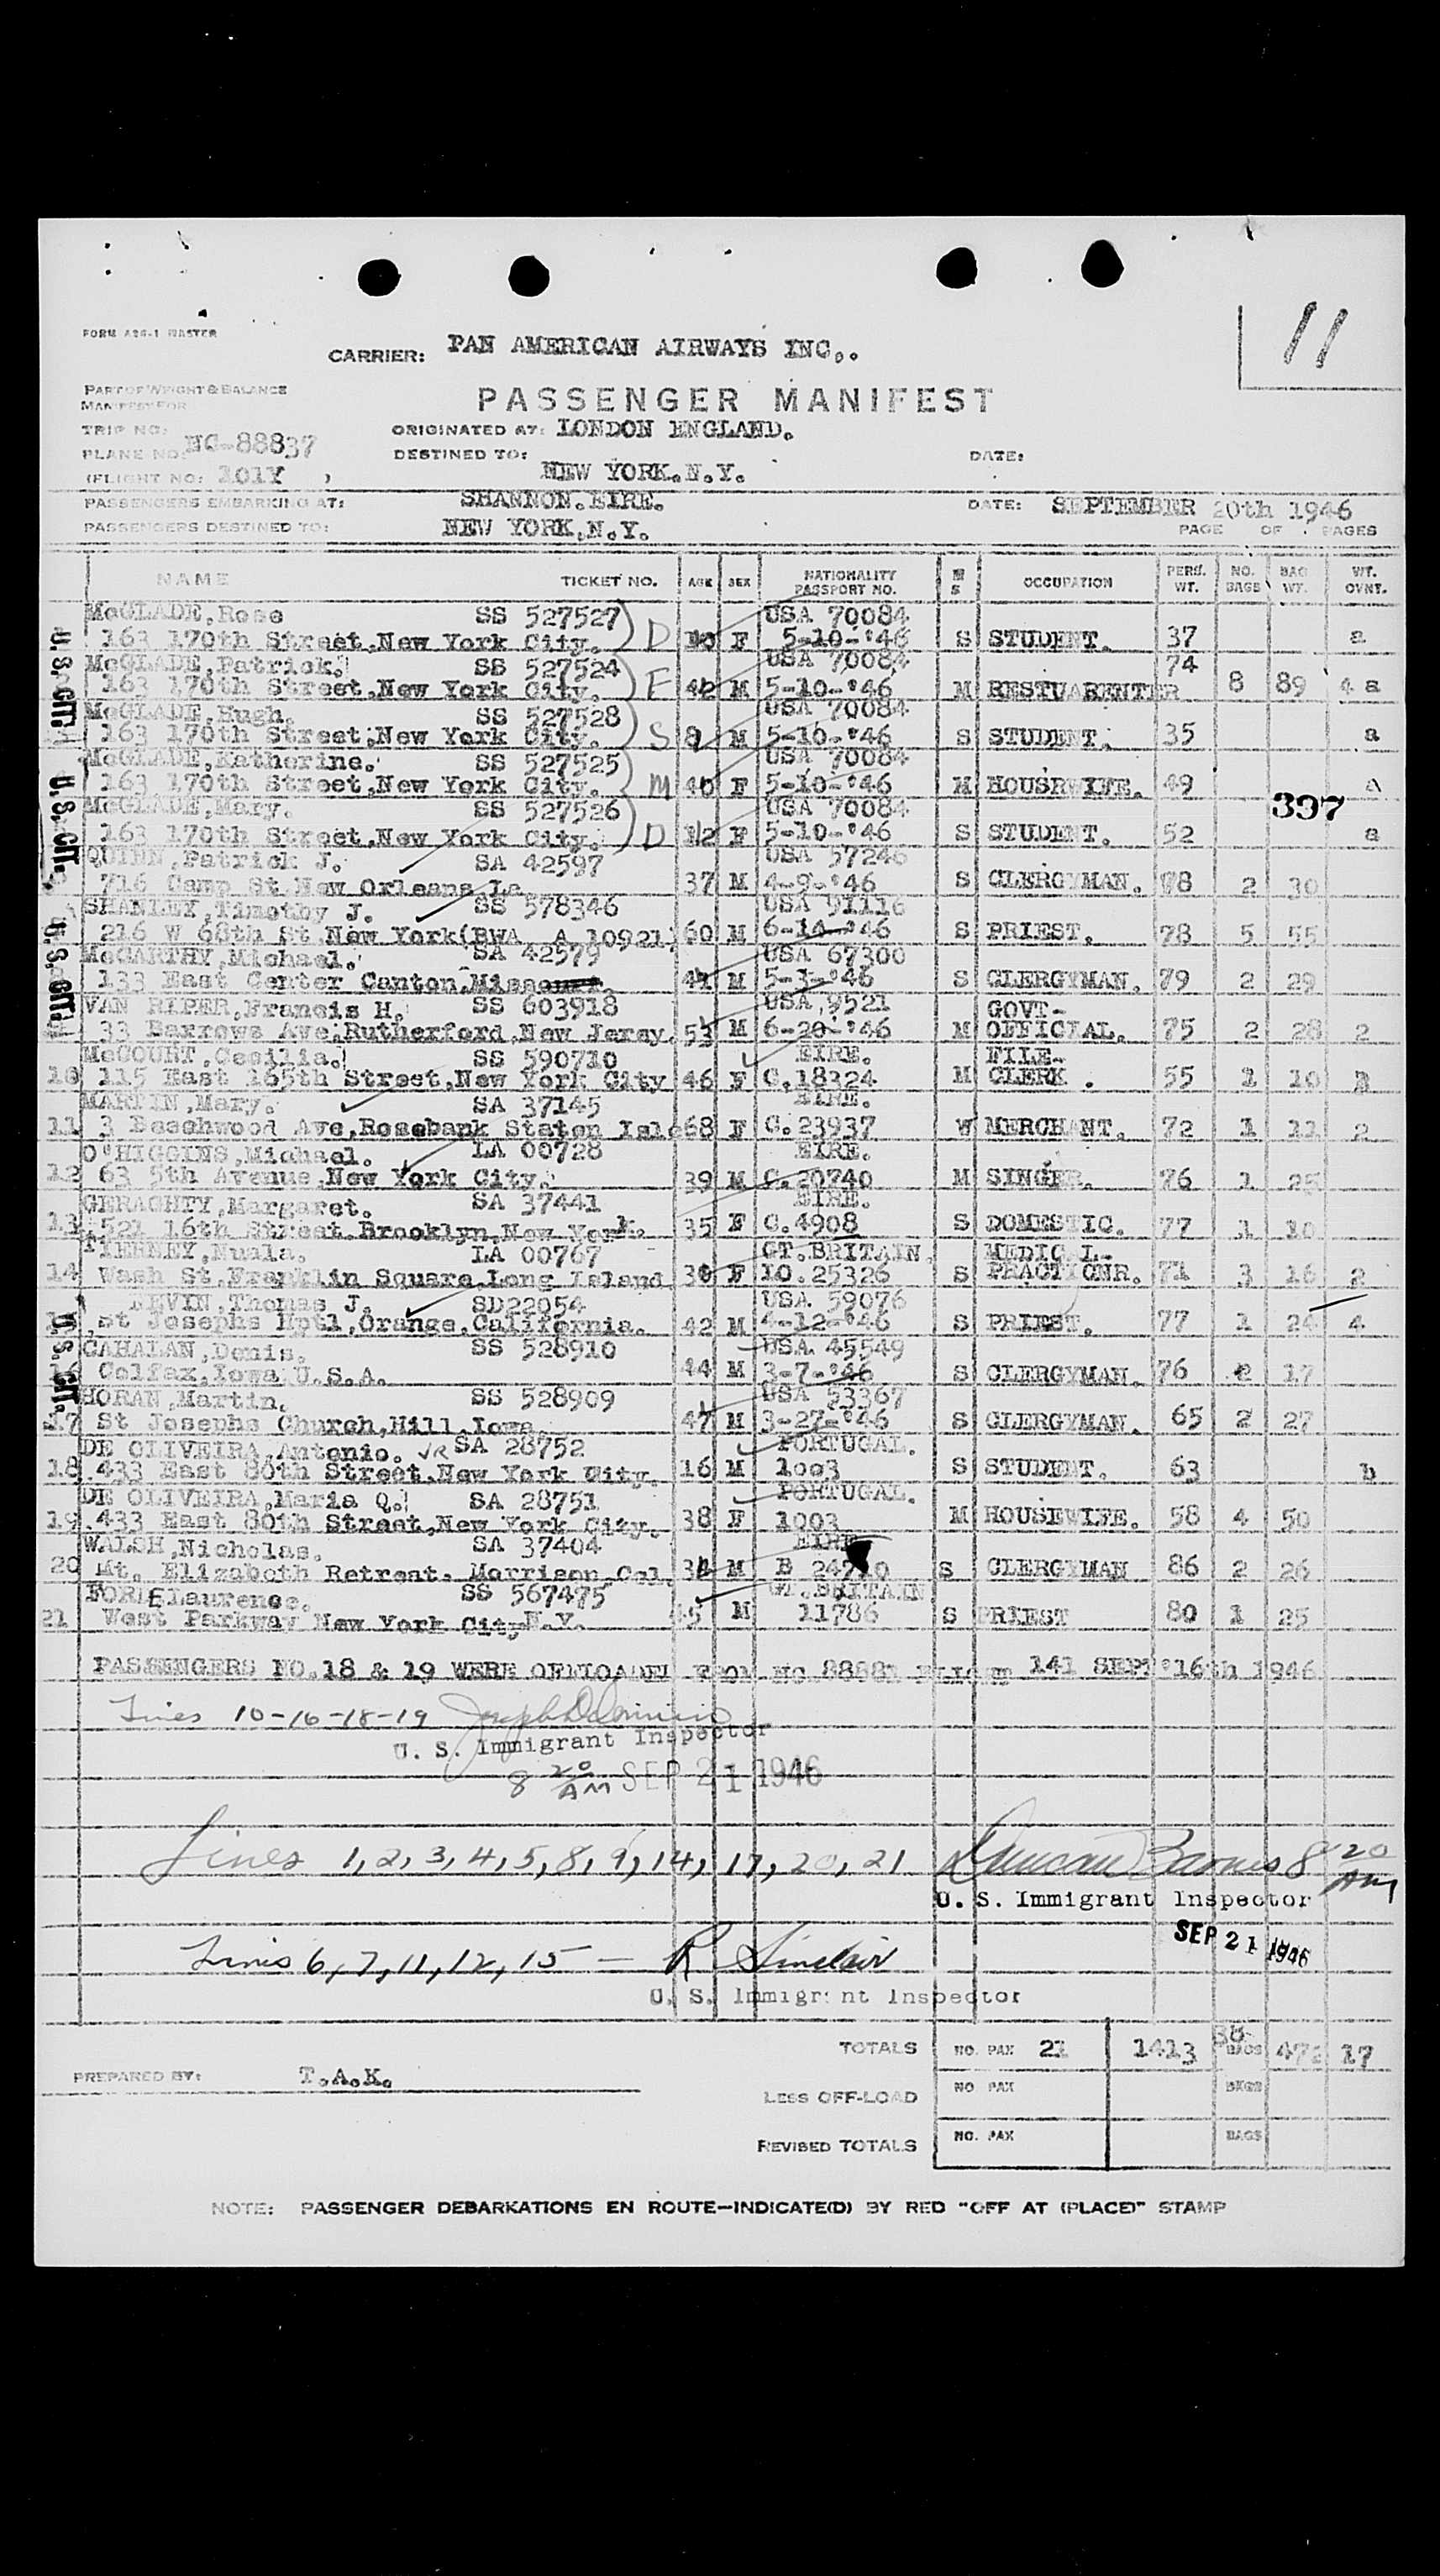 11
FORM A26-1 MASTER
CARRIER: PAN AMERICAN AIRWAYS INC..
PART OF WEIGHT & BALANCE
MANIFEST FOR
PASSENGER MANIFEST
TRIP NO:
ORIGINATED AT: LONDON ENGLAND.
PLANE NO: NC-88837
DESTINED TO: NEW YORK.N.Y. DATE:
(FLIGHT NO: 101Y )
PASSENGERS EMBARKING AT: SHANNON.EIRE. DATE: SEPTEMBER 20th 1946
PASSENGERS DESTINED TO: NEW YORK.N.Y. PAGE OF PAGES
NAME TICKET NO. AGE SEX NATIONALITY PASSPORT NO. M S OCCUPATION PERS. WT. NO. BAGS BAG WT. WT. OVNT.
McGLADE,Rose SS 527527 ) D USA 70084
163 170th Street,New York City. F 5-10-'46 S STUDENT. 37 a
McGLADE,Patrick. SS 527524 ) F USA 70084 74
163 170th Street,New York City. 42 M 5-10-'46 M RESTUARENTER 8 89 4 a
McGLADE,Hugh. SS 527528 ) S USA 70084
163 170th Street,New York City. M 5-10-'46 S STUDENT. 35 a
McGLADE,Katherine. SS 527525 ) M USA 70084
163 170th Street,New York City. 40 F 5-10-'46 M HOUSRWIFE. 49 a
397
McGLADE,Mary. SS 527526 ) D USA 70084
163 170th Street,New York City. 12 F 5-10-'46 S STUDENT. 52 a
QUINN,Patrick J. SA 42597 USA 57246
716 Camp St New Orleans,La 37 M 4-9-'46 S CLERGYMAN. 78 2 30
SHANLEY,Timothy J. SS 578346 USA 91116
216 W 68th St,New York(BWA A 10921) 60 M 6-14-'46 S PRIEST. 78 5 55
McCARTHY,Michael. SA 42579 USA 67300
133 East Center Canton,Missouri. M 5-3-'46 S CLERGYMAN. 79 2 29
VAN RIPER,Francis H. SS 603918 USA 9521 GOVT-
33 Barrows Ave,Rutherford,New Jersy. 53 M 6-20-'46 M OFFICIAL. 75 2 28 2
McCOURT,Cecilia. SS 590710 EIRE. FILE-
10 115 East 165th Street,New York City 46 F C.18324 M CLERK . 55 1 10
MARTIN,Mary. SA 37145 EIRE.
11 3 Beachwood Ave,Rosebank Staten Isle 68 F C.23937 W MERCHANT. 72 1 11 2
O'HIGGINS,Michael. LA 00728 EIRE.
12 63 5th Avenue,New York City. 39 M C.20740 M SINGER. 76 1 25
GERAGHTY,Margaret. SA 37441 EIRE.
13 521 16th Street.Brooklyn,New York. 35 F C.4908 S DOMESTIC. 77 1 10
TIERNEY,Nuala. LA 00767 GT.BRITAIN. MEDICAL-
14 Wash St,Franklin Square,Long Island F IO.25326 S PRACTIONR. 71 3 16 2
DEVIN,Thomas J. SD22054 USA 59076
St Josephs Hptl,Orange,California. 42 M 4-12-'46 S PRIEST. 77 1 24 4
CAHALAN,Denis. SS 528910 USA 45549
16 Colfax,Iowa U.S.A. 44 M 3-7-'46 S CLERGYMAN. 76 2 17
HORAN,Martin. SS 528909 USA 53367
17 St Josephs Church,Hill,Iowa 47 M 3-27-'46 S CLERGYMAN. 65 2 27
DE OLIVEIRA,Antonio. SA 28752 PORTUGAL.
18 433 East 80th Street,New York City. 16 M 1003 S STUDENT. 63 b
DE OLIVEIRA,Maria Q. SA 28751 PORTUGAL.
19 433 East 80th Street,New York City. 38 F 1003 M HOUSEWIFE. 58 4 50
WALSH,Nicholas. SA 37404 EIRE
20 Mt. Elizabeth Retreat. Morrison,Col. M B S CLERGYMAN 86 2 26
FORDE Laurence. SS 567475 GT.BRITAIN
21 West Parkway New York City N.Y. M 11786 S PRIEST 80 1 25
U.S. CIT.
U.S. CIT.
U.S. CIT.
U.S. CIT.
PASSENGERS NO.18 & 19 WERE OFFLOADED FROM NC FLIGHT 141 SEPT 16th 1946
Lines 10-16-18-19
U. S. Immigrant Inspector
8 20 AM SEP 21 1946
Lines 1,2,3,4,5,8,9,14,17,20,21 Duncan Barnes 8 20 AM
U. S. Immigrant Inspector
SEP 21 1946
Lines 6,7,11,12,15 — R Sinclair
U. S. Immigrant Inspector
TOTALS NO. PAX 21 1413 38 BAGS 472 17
PREPARED BY: T.A.K.
LESS OFF-LOAD NO. PAX BAGS
REVISED TOTALS NO. PAX BAGS
NOTE: PASSENGER DEBARKATIONS EN ROUTE—INDICATE(D) BY RED "OFF AT (PLACE)" STAMP